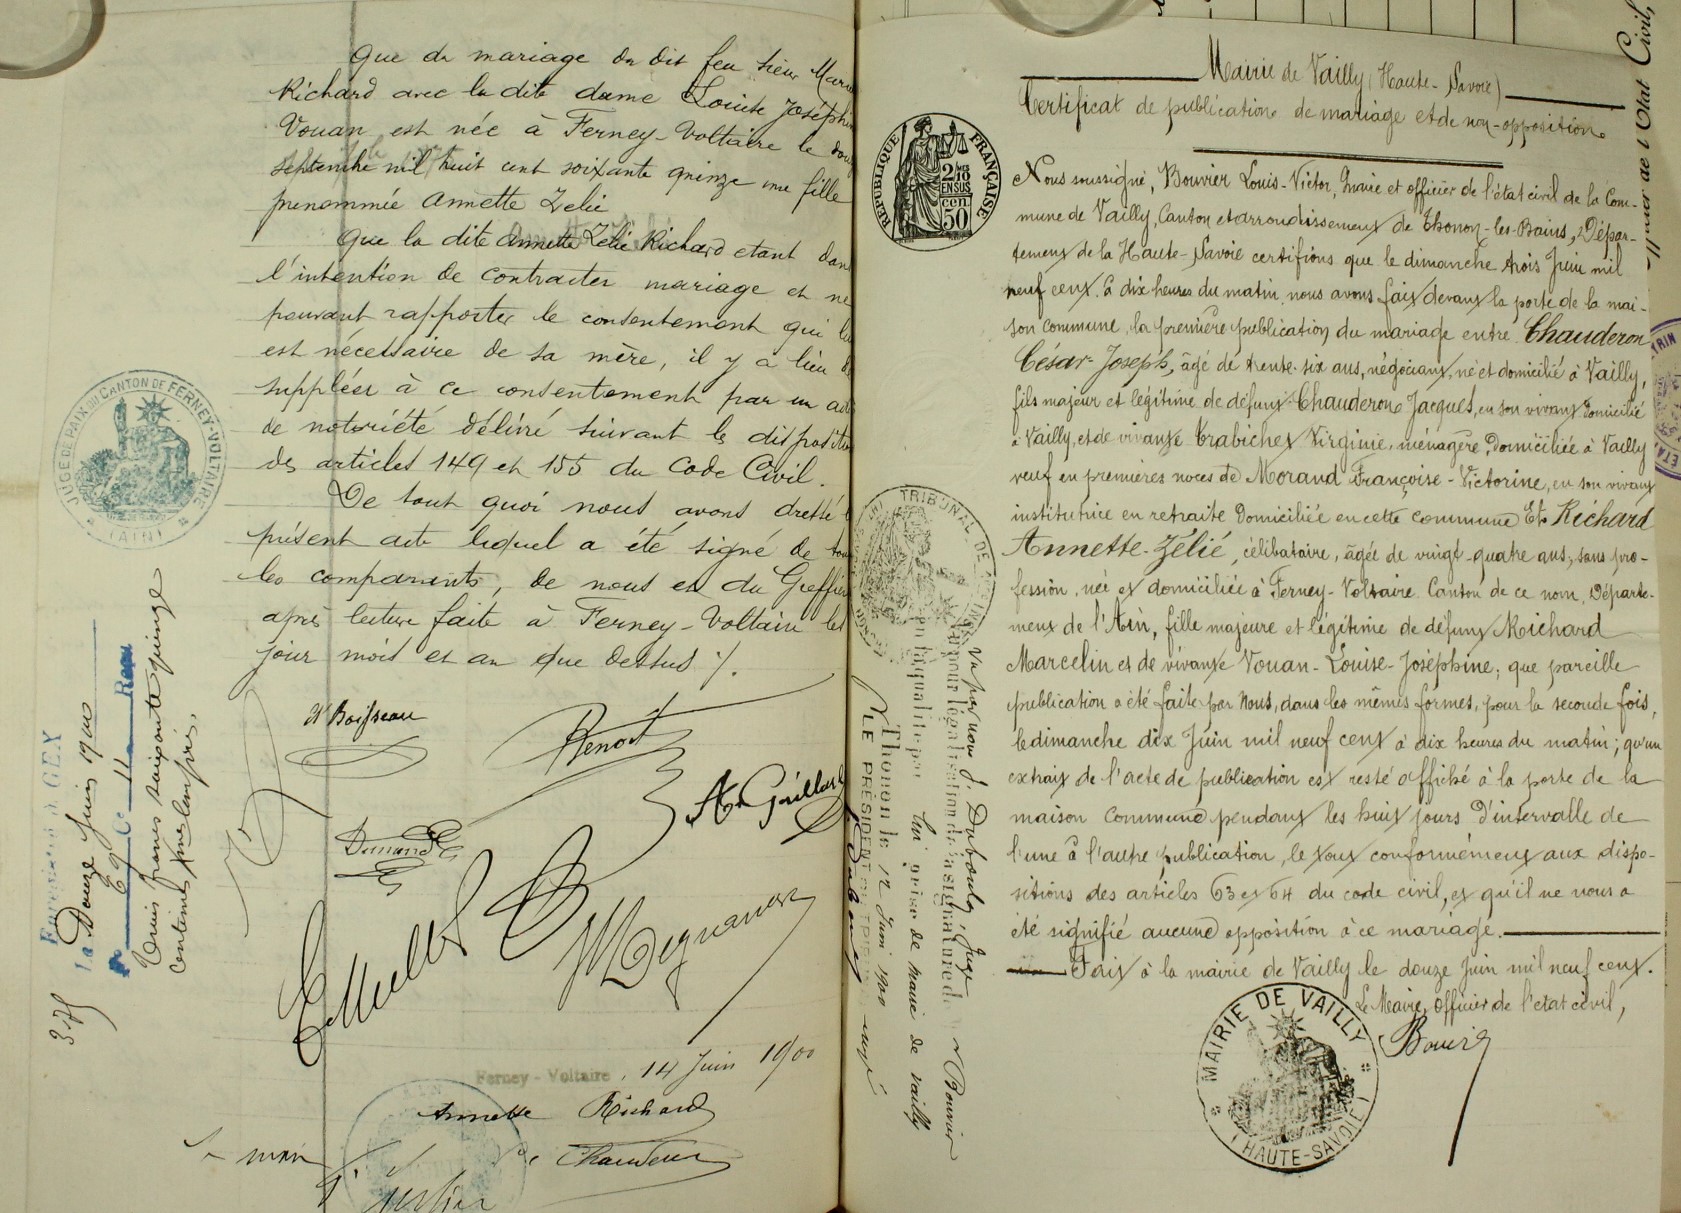 Que du mariage du dit feu sieur
Richard avec la dite dame Louise Joséph
Vouan est née à Ferney-Voltaire le
septembre mil huit cent soixante quinze une fille
prénommée Annette Zelie
Que la dite Annette Zelie Richard etant dan
l'intention de contracter mariage et ne
pouvant rapporter le consentement qui lui
est nécessaire de sa mère, il y a lieu de
suppléer à ce consentement par un acte
de notoriété délivré suivant les
des articles 149 et 155 du Code Civil.
De tout quoi nous avons dressé l
présent acte lequel a été signé de
les comparants, de nous et du Greffier
après lecture faite à Ferney-Voltaire les
jour mois et an que dessus /.
Boisseau
Benoit
A. Gaillard
Dunand
E Muller
Ferney-Voltaire, 14 Juin 1900
Annette Richard
JUGE DE PAIX DU CANTON DE FERNEY-VOLTAIRE
(AIN)
GEX
le Douze Juin 1900
69 C 11
Trois francs soixante quinze
centimes
375
Mairie de Vailly (Haute-Savoie)
Certificat de publication de mariage et de non-opposition
RÉPUBLIQUE FRANÇAISE
2/10
EN SUS
50 cen
Nous soussigné, Bouvier Louis-Victor, Maire et officier de l'état civil de la Com-
mune de Vailly, Canton et arrondissement de Thonon-les-Bains, Dépar-
tement de la Haute-Savoie certifions que le dimanche trois Juin mil
neuf cent à dix heures du matin, nous avons fait devant la porte de la mai-
son commune, la première publication du mariage entre Chauderon
César-Joseph, âgé de trente-six ans, négociant, né et domicilié à Vailly,
fils majeur et légitime de défunt Chauderon Jacques, en son vivant domicilié
à Vailly, et de vivante Trabichet Virginie, ménagère, domiciliée à Vailly
veuf en premières noces de Morand Françoise-Victorine, en son vivant
institutrice en retraite domiciliée en cette commune Et Richard
Annette-Zélié, célibataire, âgée de vingt-quatre ans, sans pro-
fession, née et domiciliée à Ferney-Voltaire Canton de ce nom, Départe-
ment de l'Ain, fille majeure et légitime de défunt Richard
Marcelin et de vivante Vouan-Louise-Joséphine; que pareille
publication a été faite par Nous, dans les mêmes formes, pour la seconde fois,
le dimanche dix Juin mil neuf cent à dix heures du matin; qu'un
extrait de l'acte de publication est resté affiché à la porte de la
maison commune pendant les huit jours d'intervalle de
l'une à l'autre publication, le tout conformément aux dispo-
sitions des articles 63 et 64 du code civil, et qu'il ne nous a
été signifié aucune opposition à ce mariage.
Fait à la mairie de Vailly le douze Juin mil neuf cent.
Le Maire, Officier de l'état civil,
MAIRIE DE VAILLY
(HAUTE-SAVOIE)
Vu par nous Dubouloz, Juge
pour légalisation de la signature de M. Bouvier
en sa qualité de maire de Vailly
Thonon le 12 Juin 1900
LE PRÉSIDENT
TRIBUNAL DE
Officier de l'Etat Civil,